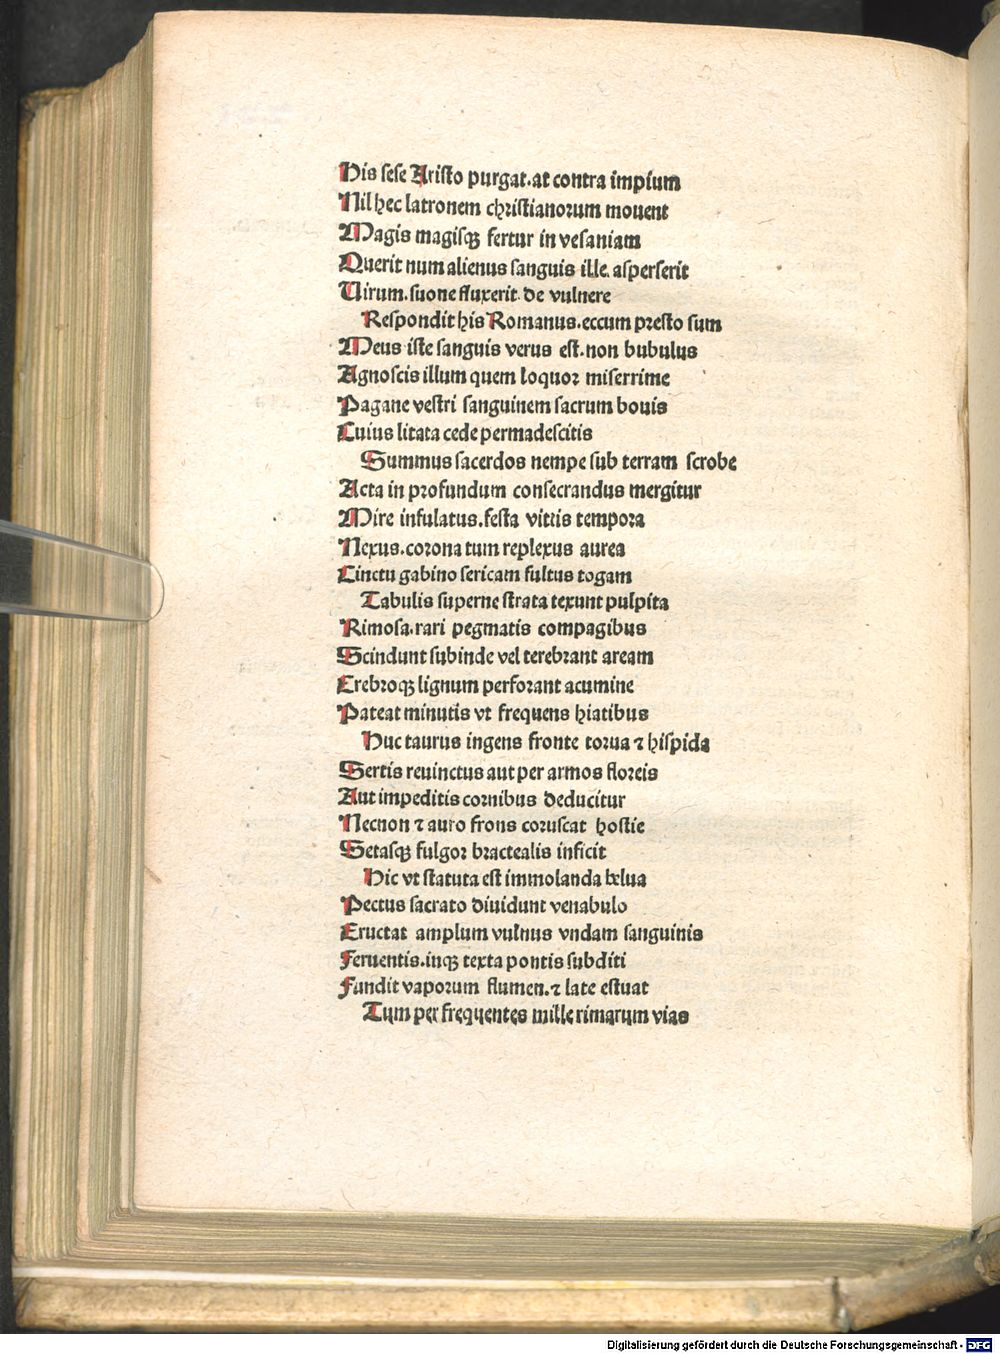 His sese Aristo purgat. at contra impium
Nil hec latronem christianorum mouent
Magis magisqꝫ fertur in vesaniam
Querit num alienus sanguis ille. asperserit
Uirum. suone fluxerit. de vulnere
Respondit his Romanus. eccum presto sum
Meus iste sanguis verus est. non bubulus
Agnoscis illum quem loquor miserrime
Pagane vestri sanguinem sacrum bouis
Cuius litata cede permadescitis
Summus sacerdos nempe sub terram scrobe
Acta in profundum consecrandus mergitur
Mire infulatus. festa vittis tempora
Nexus. corona tum replexus aurea
Cinctu gabino sericam fultus togam
Tabulis superne strata texunt pulpita
Rimosa. rari pegmatis compagibus
Scindunt subinde vel terebrant aream
Crebroqꝫ lignum perforant acumine
Pateat minutis vt frequens hiatibus
Huc taurus ingens fronte torua ⁊ hispida
Sertis reuinctus aut per armos floreis
Aut impeditis cornibus deducitur
Necnon ⁊ auro frons coruscat hostie
Setasqꝫ fulgor bractealis inficit
Hic vt statuta est immolanda belua
Pectus sacrato diuidunt venabulo
Eructat amplum vulnus vndam sanguinis
Feruentis. inqꝫ texta pontis subditi
Fundit vaporum flumen. ⁊ late estuat
Tum per frequentes mille rimarum vias
Digitalisierung gefördert durch die Deutsche Forschungsgemeinschaft - DFG